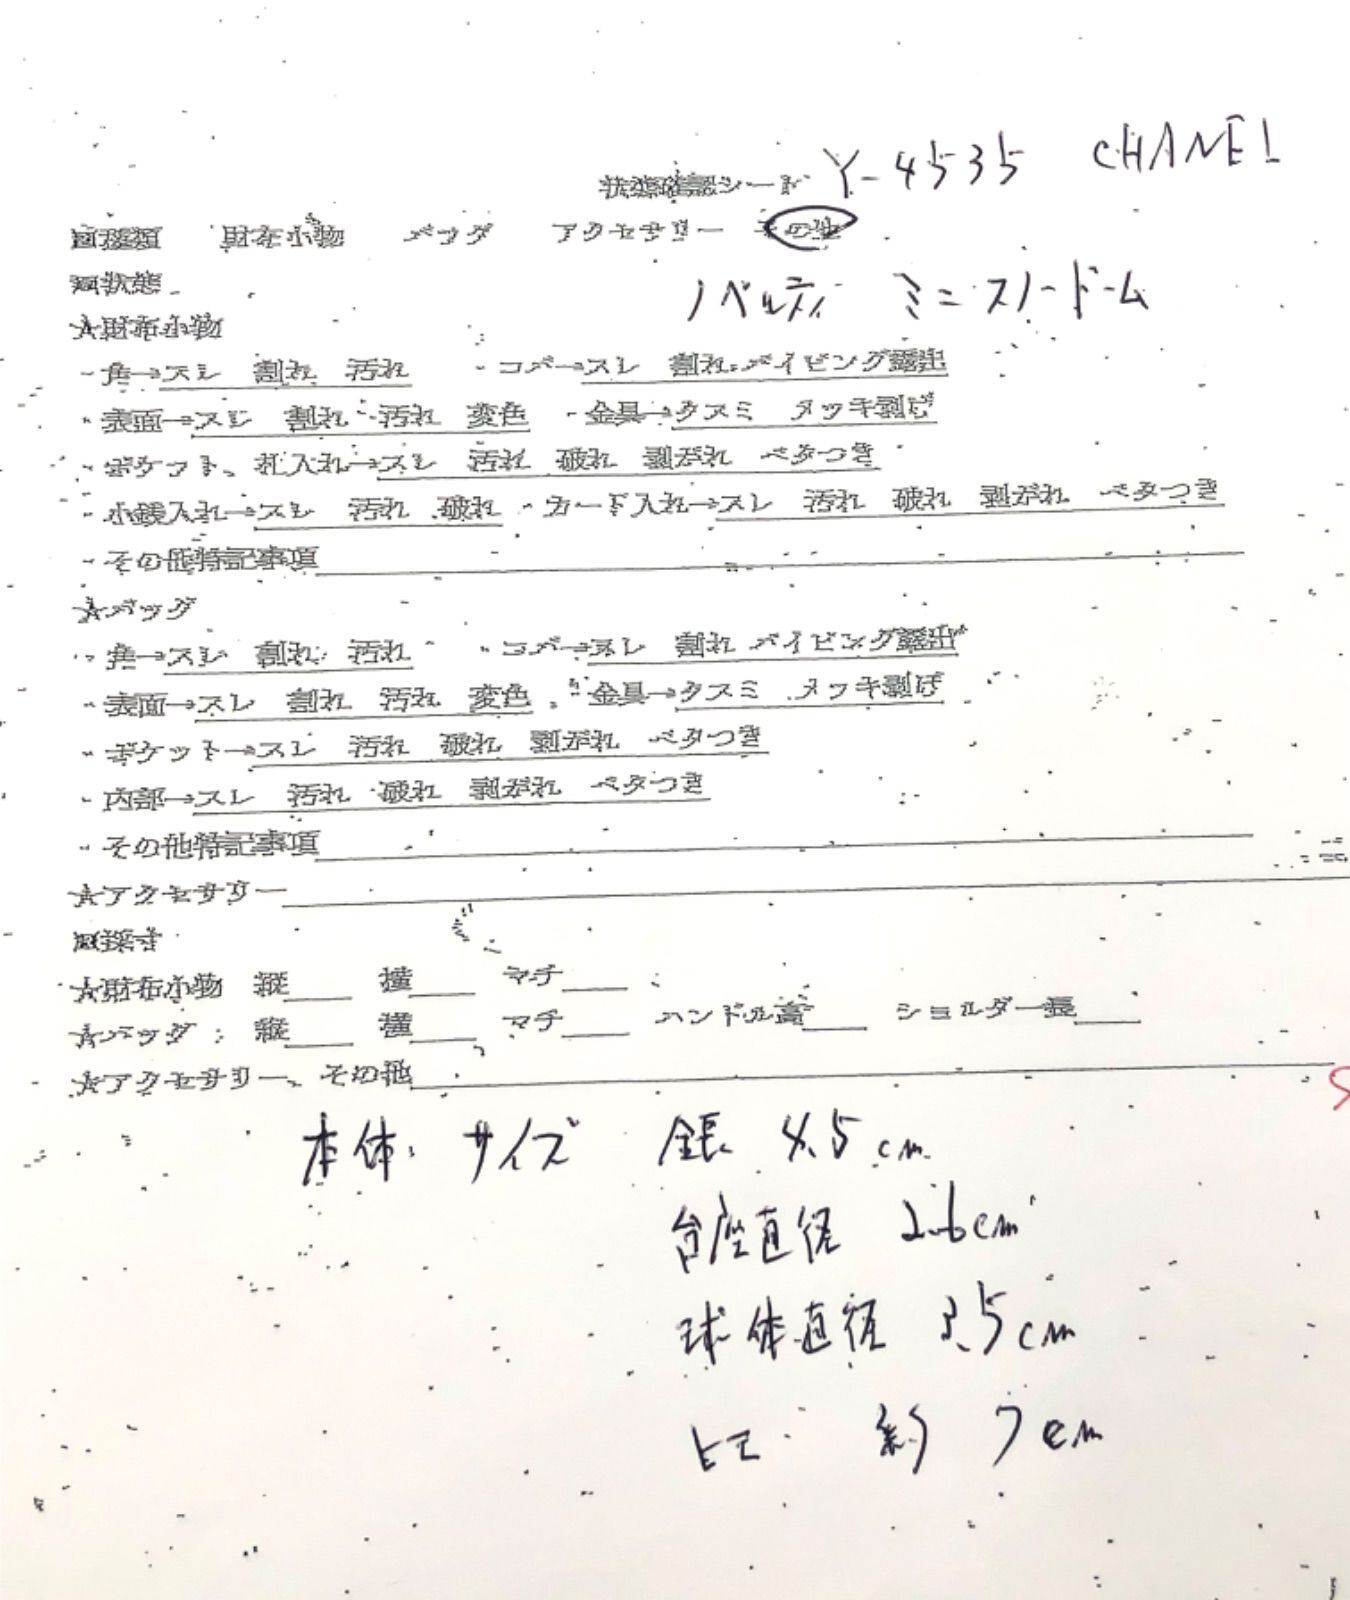 状態確認シート Y-4535 CHANEL
□種類 財布小物 バッグ アクセサリー その他
□状態
ノベルティ ミニスノードーム
☆財布小物
・角→スレ 割れ 汚れ ・コバ→スレ 割れ パイピング露出
・表面→スレ 割れ 汚れ 変色 ・金具→クスミ メッキ剥げ
・ポケット、札入れ→スレ 汚れ 破れ 剥がれ ベタつき
・小銭入れ→スレ 汚れ 破れ ・カード入れ→スレ 汚れ 破れ 剥がれ ベタつき
・その他特記事項
☆バッグ
・角→スレ 割れ 汚れ ・コバ→スレ 割れ パイピング露出
・表面→スレ 割れ 汚れ 変色 ・金具→クスミ メッキ剥げ
・ポケット→スレ 汚れ 破れ 剥がれ ベタつき
・内部→スレ 汚れ 破れ 剥がれ ベタつき
・その他特記事項
☆アクセサリー
□採寸
☆財布小物 縦 横 マチ
☆バッグ 縦 横 マチ ハンドル高 ショルダー長
☆アクセサリー、その他
本体 サイズ 全長 4.5cm
台座直径 2.6cm
球体直径 3.5cm
ヒモ 約 7cm